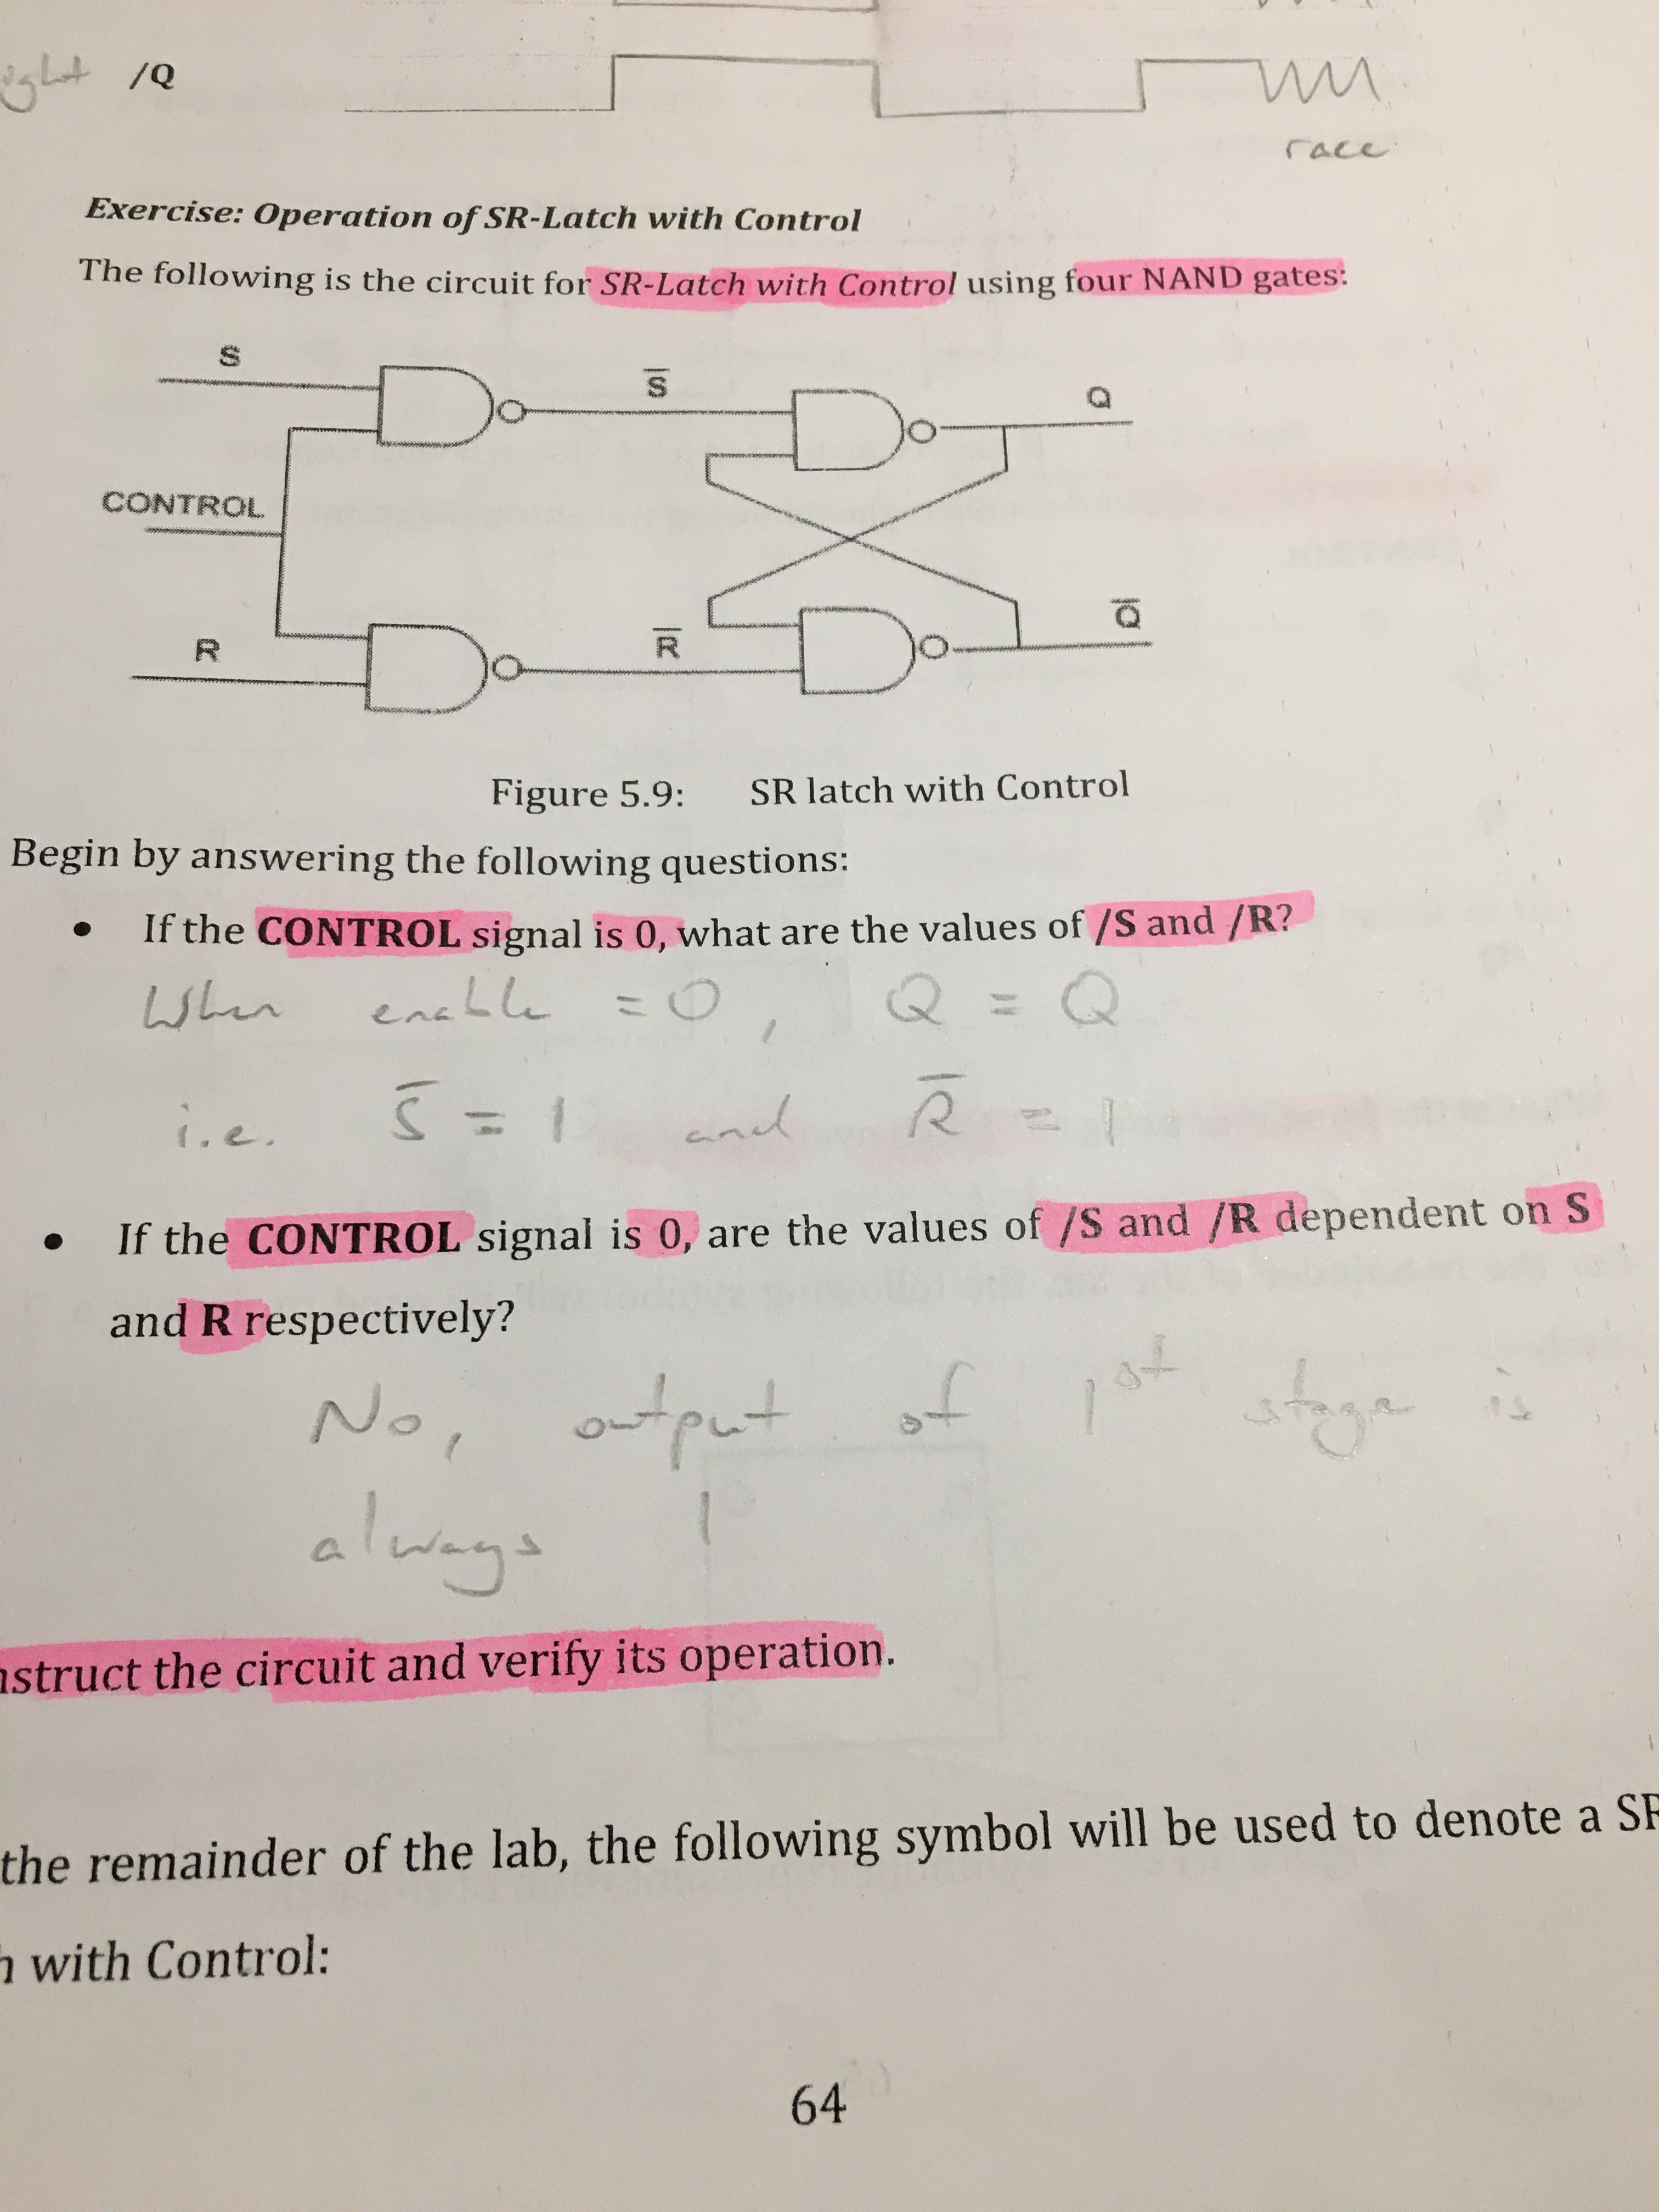 /Q
race
Exercise: Operation of SR-Latch with Control
The following is the circuit for SR-Latch with Control using four NAND gates:
S
S̅
Q
CONTROL
R
R̅
Q̅
Figure 5.9: SR latch with Control
Begin by answering the following questions:
• If the CONTROL signal is 0, what are the values of /S and /R?
When enable = 0, Q = Q
i.e. S̅ = 1 and R̅ = 1
• If the CONTROL signal is 0, are the values of /S and /R dependent on S
and R respectively?
No, output of 1st stage is
always 1
nstruct the circuit and verify its operation.
the remainder of the lab, the following symbol will be used to denote a SR
h with Control:
64